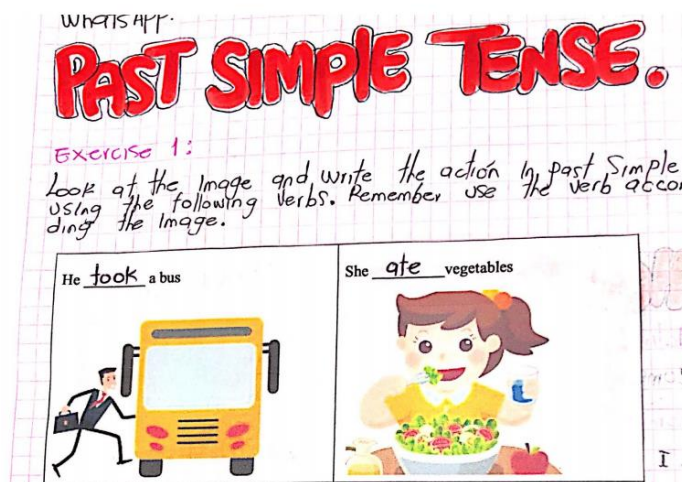 WhatsApp.
PAST SIMPLE TENSE.
Exercise 1:
Look at the Image and write the action In Past Simple
using the following Verbs. Remember use the verb accor
ding the Image.
He took a bus
She ate vegetables
I